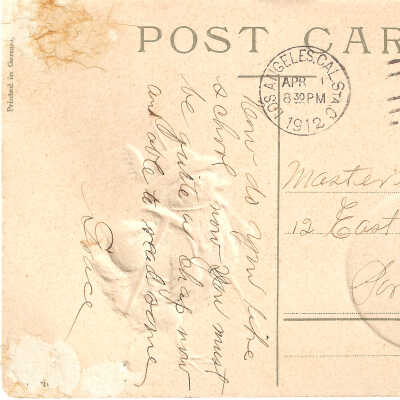 POST CAR
Printed in German
LOS ANGELES, CAL. STA. C
APR 1
8 30 PM
1912
How do you like
school now You must
be quite a chap now
and able to read some
Grace
Master
12 East
Por